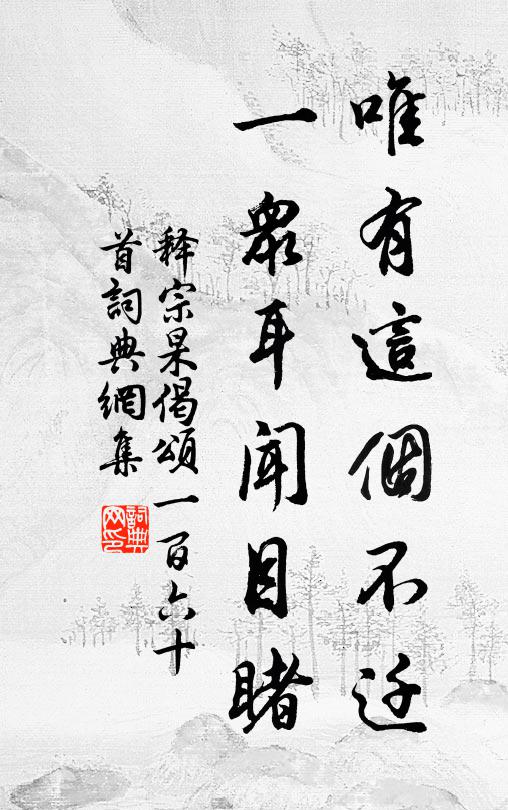 唯有這個不迁
一眾耳聞目睹
释宗杲偈頌一百六十
首詞典網集
詞典
网印